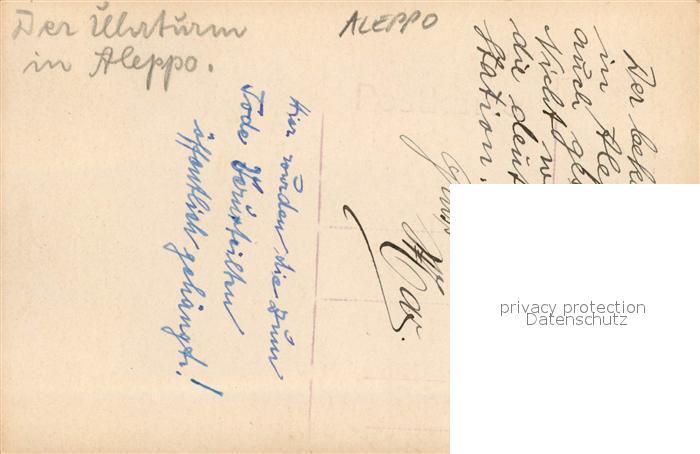 Der Uhrturm
in Aleppo.
ALEPPO
Hier wurden die zum
Tode Verurteilten
öffentlich gehängt!
Der bek
in Alep
auch gl
Nichts w
die deut
Station.
Gruss
privacy protection
Datenschutz